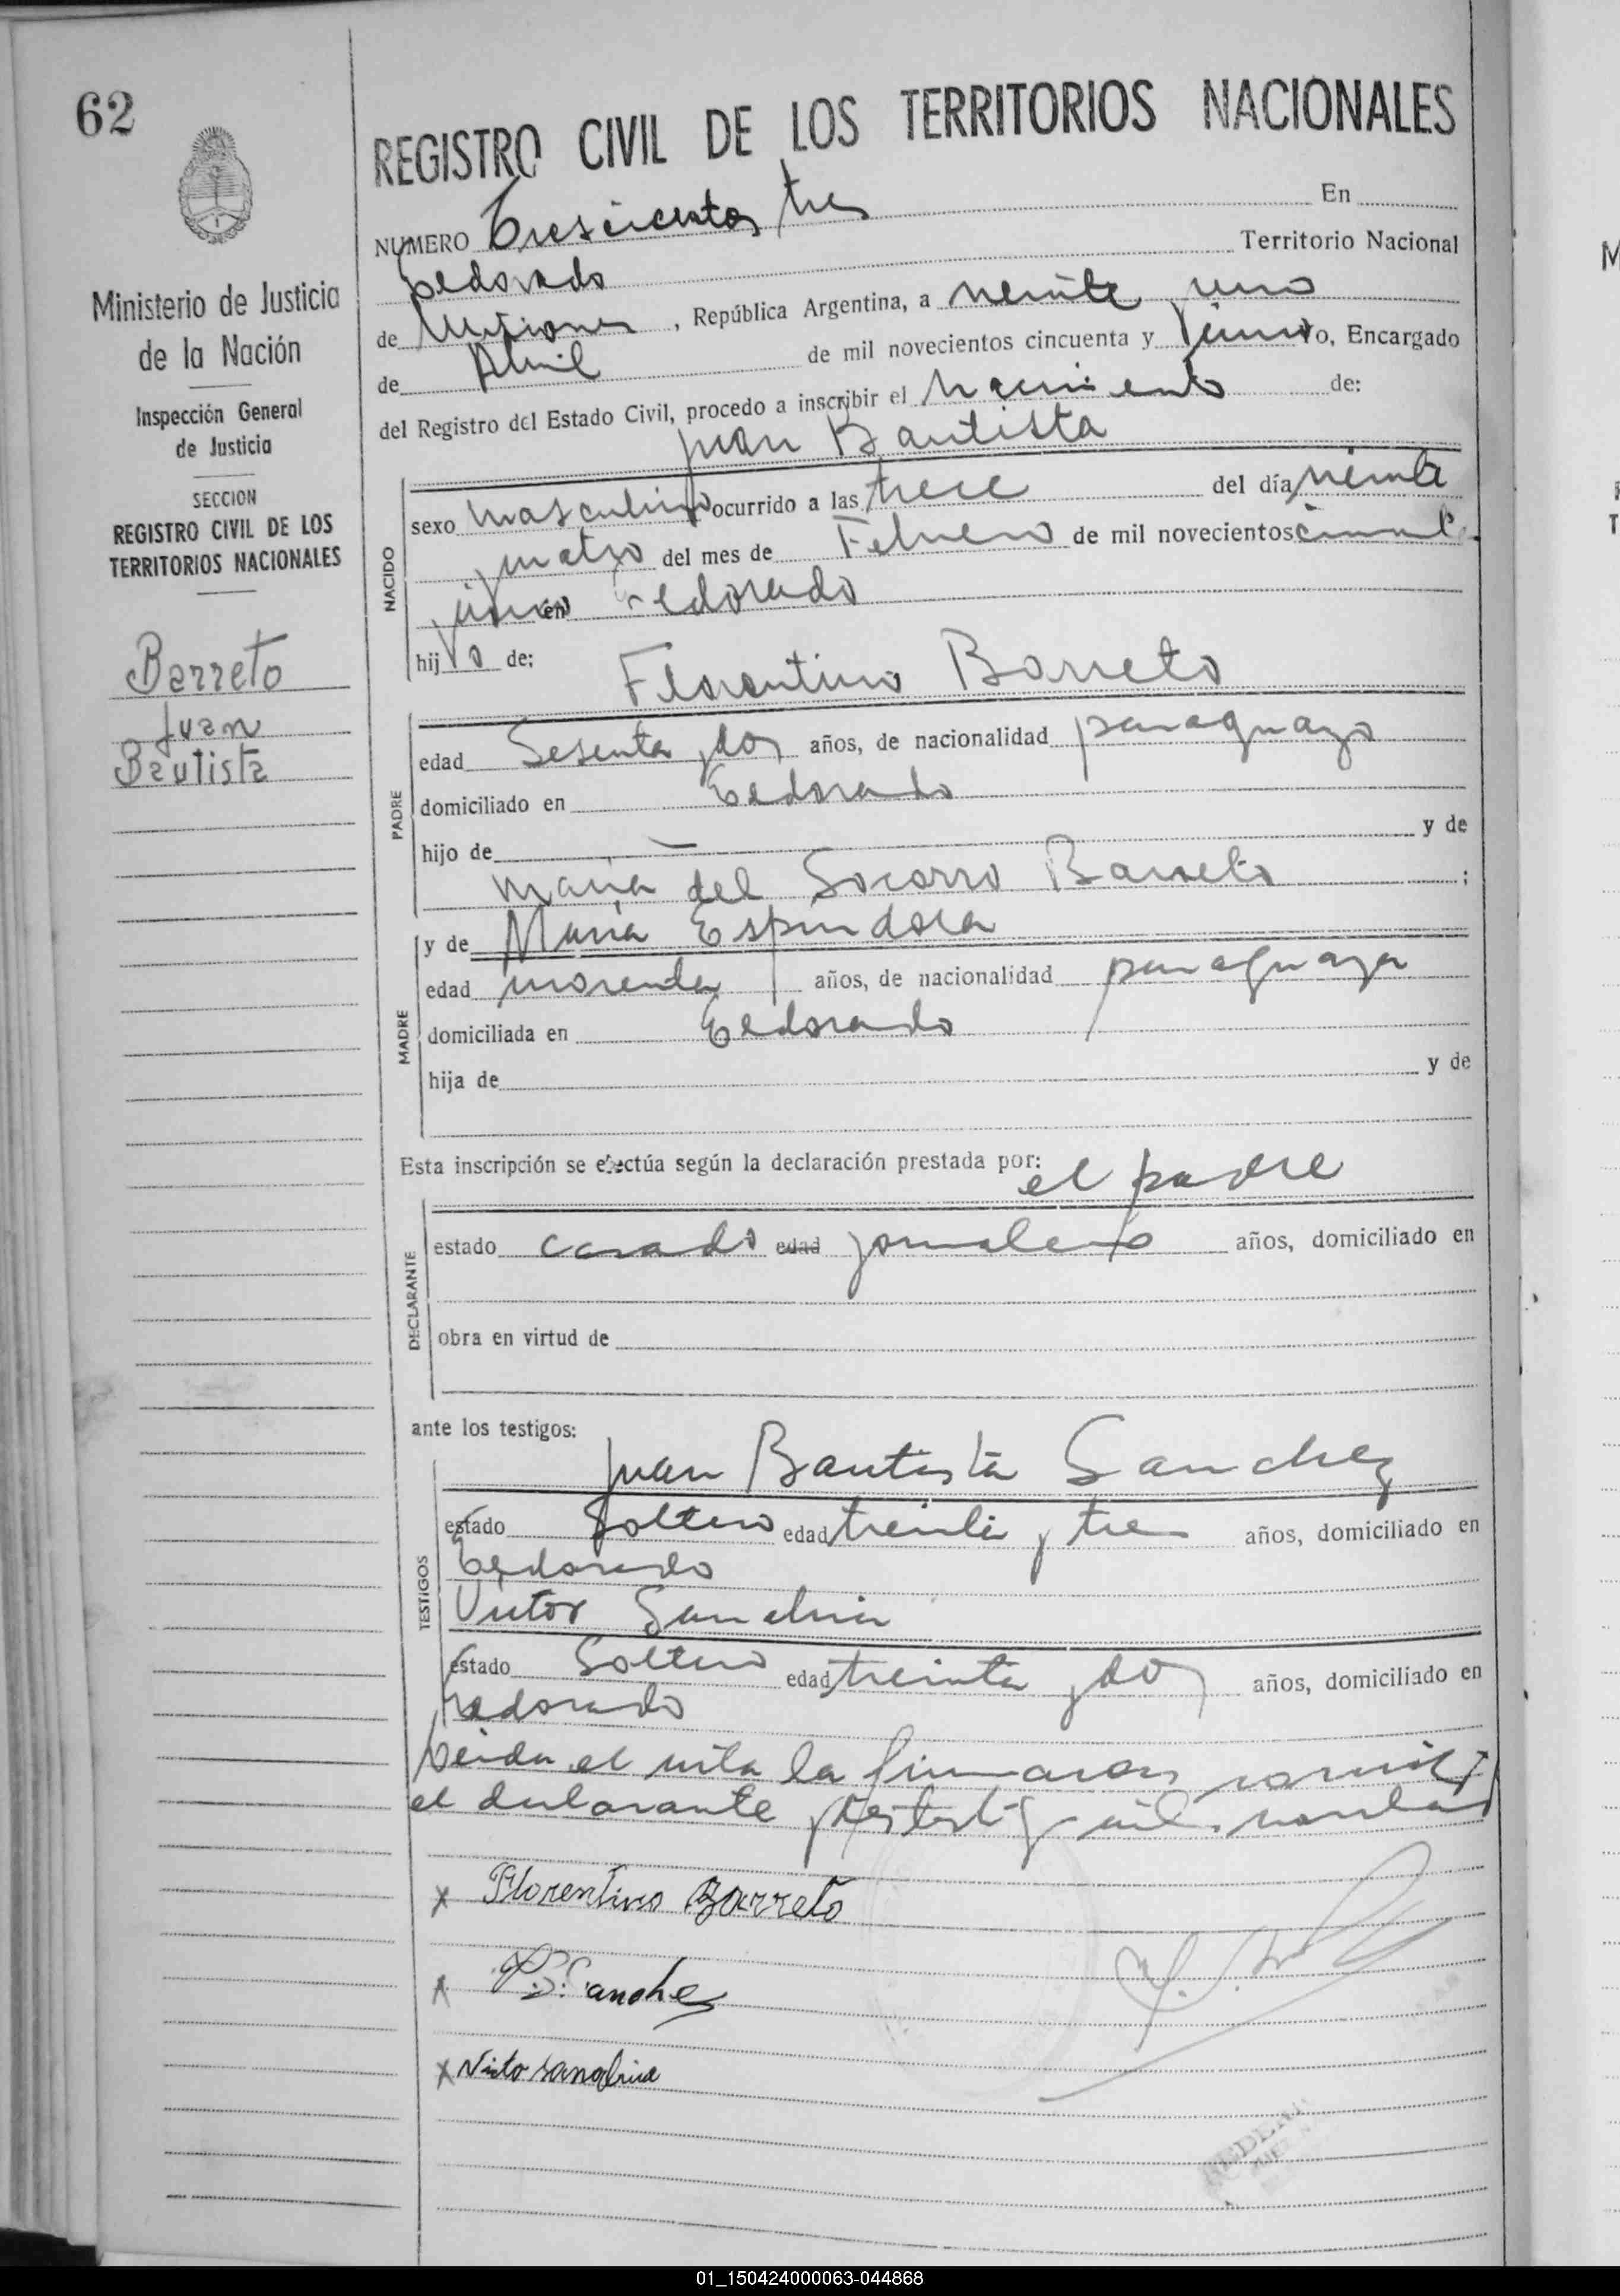 62
REGISTRO CIVIL DE LOS TERRITORIOS NACIONALES
Ministerio de Justicia
de la Nación
Inspección General
de Justicia
SECCION
REGISTRO CIVIL DE LOS
TERRITORIOS NACIONALES
Barreto
Juan
Bautista
NUMERO Trescientos tres En
Eldorado Territorio Nacional
de Misiones, República Argentina, a veinte uno
de Abril de mil novecientos cincuenta y uno yo, Encargado
del Registro del Estado Civil, procedo a inscribir el nacimiento de:
Juan Bautista
NACIDO
sexo masculino ocurrido a las trece del día veinte
y cuatro del mes de Febrero de mil novecientos cincuenta
y uno en Eldorado
hijo de: Florentino Barreto
PADRE
edad Sesenta y dos años, de nacionalidad paraguayo
domiciliado en Eldorado
hijo de — y de
María del Socorro Barreto ;
MADRE
y de María Espindola
edad años, de nacionalidad paraguaya
domiciliada en Eldorado
hija de y de
Esta inscripción se efectúa según la declaración prestada por: el padre
DECLARANTE
estado casado edad jornalero años, domiciliado en
obra en virtud de
ante los testigos:
Juan Bautista Sanchez
TESTIGOS
estado Soltero edad treinta y tres años, domiciliado en
Eldorado
Victor Sanabria
estado Soltero edad treinta y dos años, domiciliado en
Eldorado
Leida el acta la firmaron conmigo
el declarante y testigos
x Florentino Barreto
x J.B. Sanchez
x Victo sanabria
01_150424000063-044868